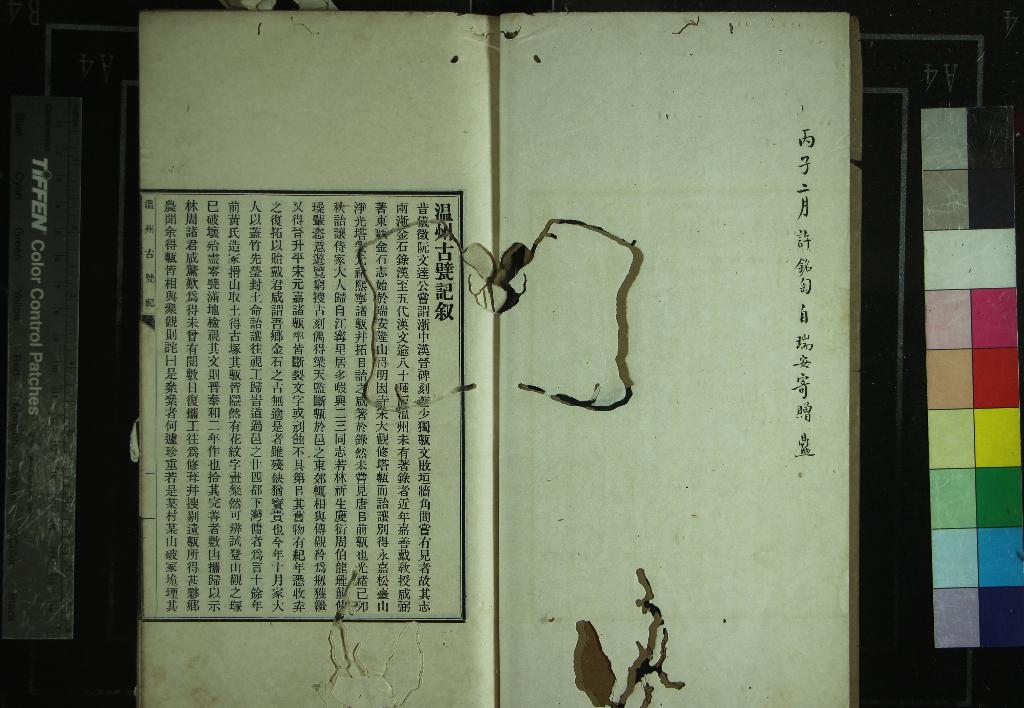 丙子二月許銘匋自瑞安寄贈
温州古甓記叙
昔儀徵阮文達公嘗謂浙中漢晉碑刻 少獨甎文敗垣牆角間嘗有見者故其志
兩浙金石錄漢至五代漢文逾八十種 温州未有著錄者近年嘉善戴敎授咸弼
著東甌金石志始於瑞安隆山 得明因寺宋大觀修塔甎而詒讓別得永嘉松臺山
淨光塔 熙寧諸甎幷拓目詒之咸箸於錄然未嘗見唐 前甎也光緒己卯
秋詒讓侍家大人歸自江寧里居多暇與二三同志若林祈生慶衍周伯龍瓏
璪輩恣意遊覽窮搜古刻偶得梁天監斷甎於邑之東郊輒相與傳觀矜爲 獲
又得晉升平宋元嘉諸甎率皆斷裂文字或刓蝕不具第 其舊物有紀年悉收弆
之復拓以貽戴君咸謂吾鄉金石之古無逾是者雖殘缺猶寶貴也今年十月家大
人以蓋竹先塋封土命詒讓往視工歸 道過邑之廿四都下灣傭者爲言十餘年
前黃氏造冢搰山取土得古塚其甎皆隱然有花紋字畫粲然可辨試登山觀之塚
已破壞殆盡零甓滿地檢視其文則晉泰和二年作也拾其完善者數 攜歸以示
林周諸君咸驚歎爲得未曾有閒數日復攜工往爲修葺幷搜剔遺甎所得甚夥鄉
農聞余得甎皆相與聚觀則詫曰是纍纍者何遽珍重若是某村某山破冢 壞其
温州古甓記
一
TIFFEN Color Control Patches
A4
A4